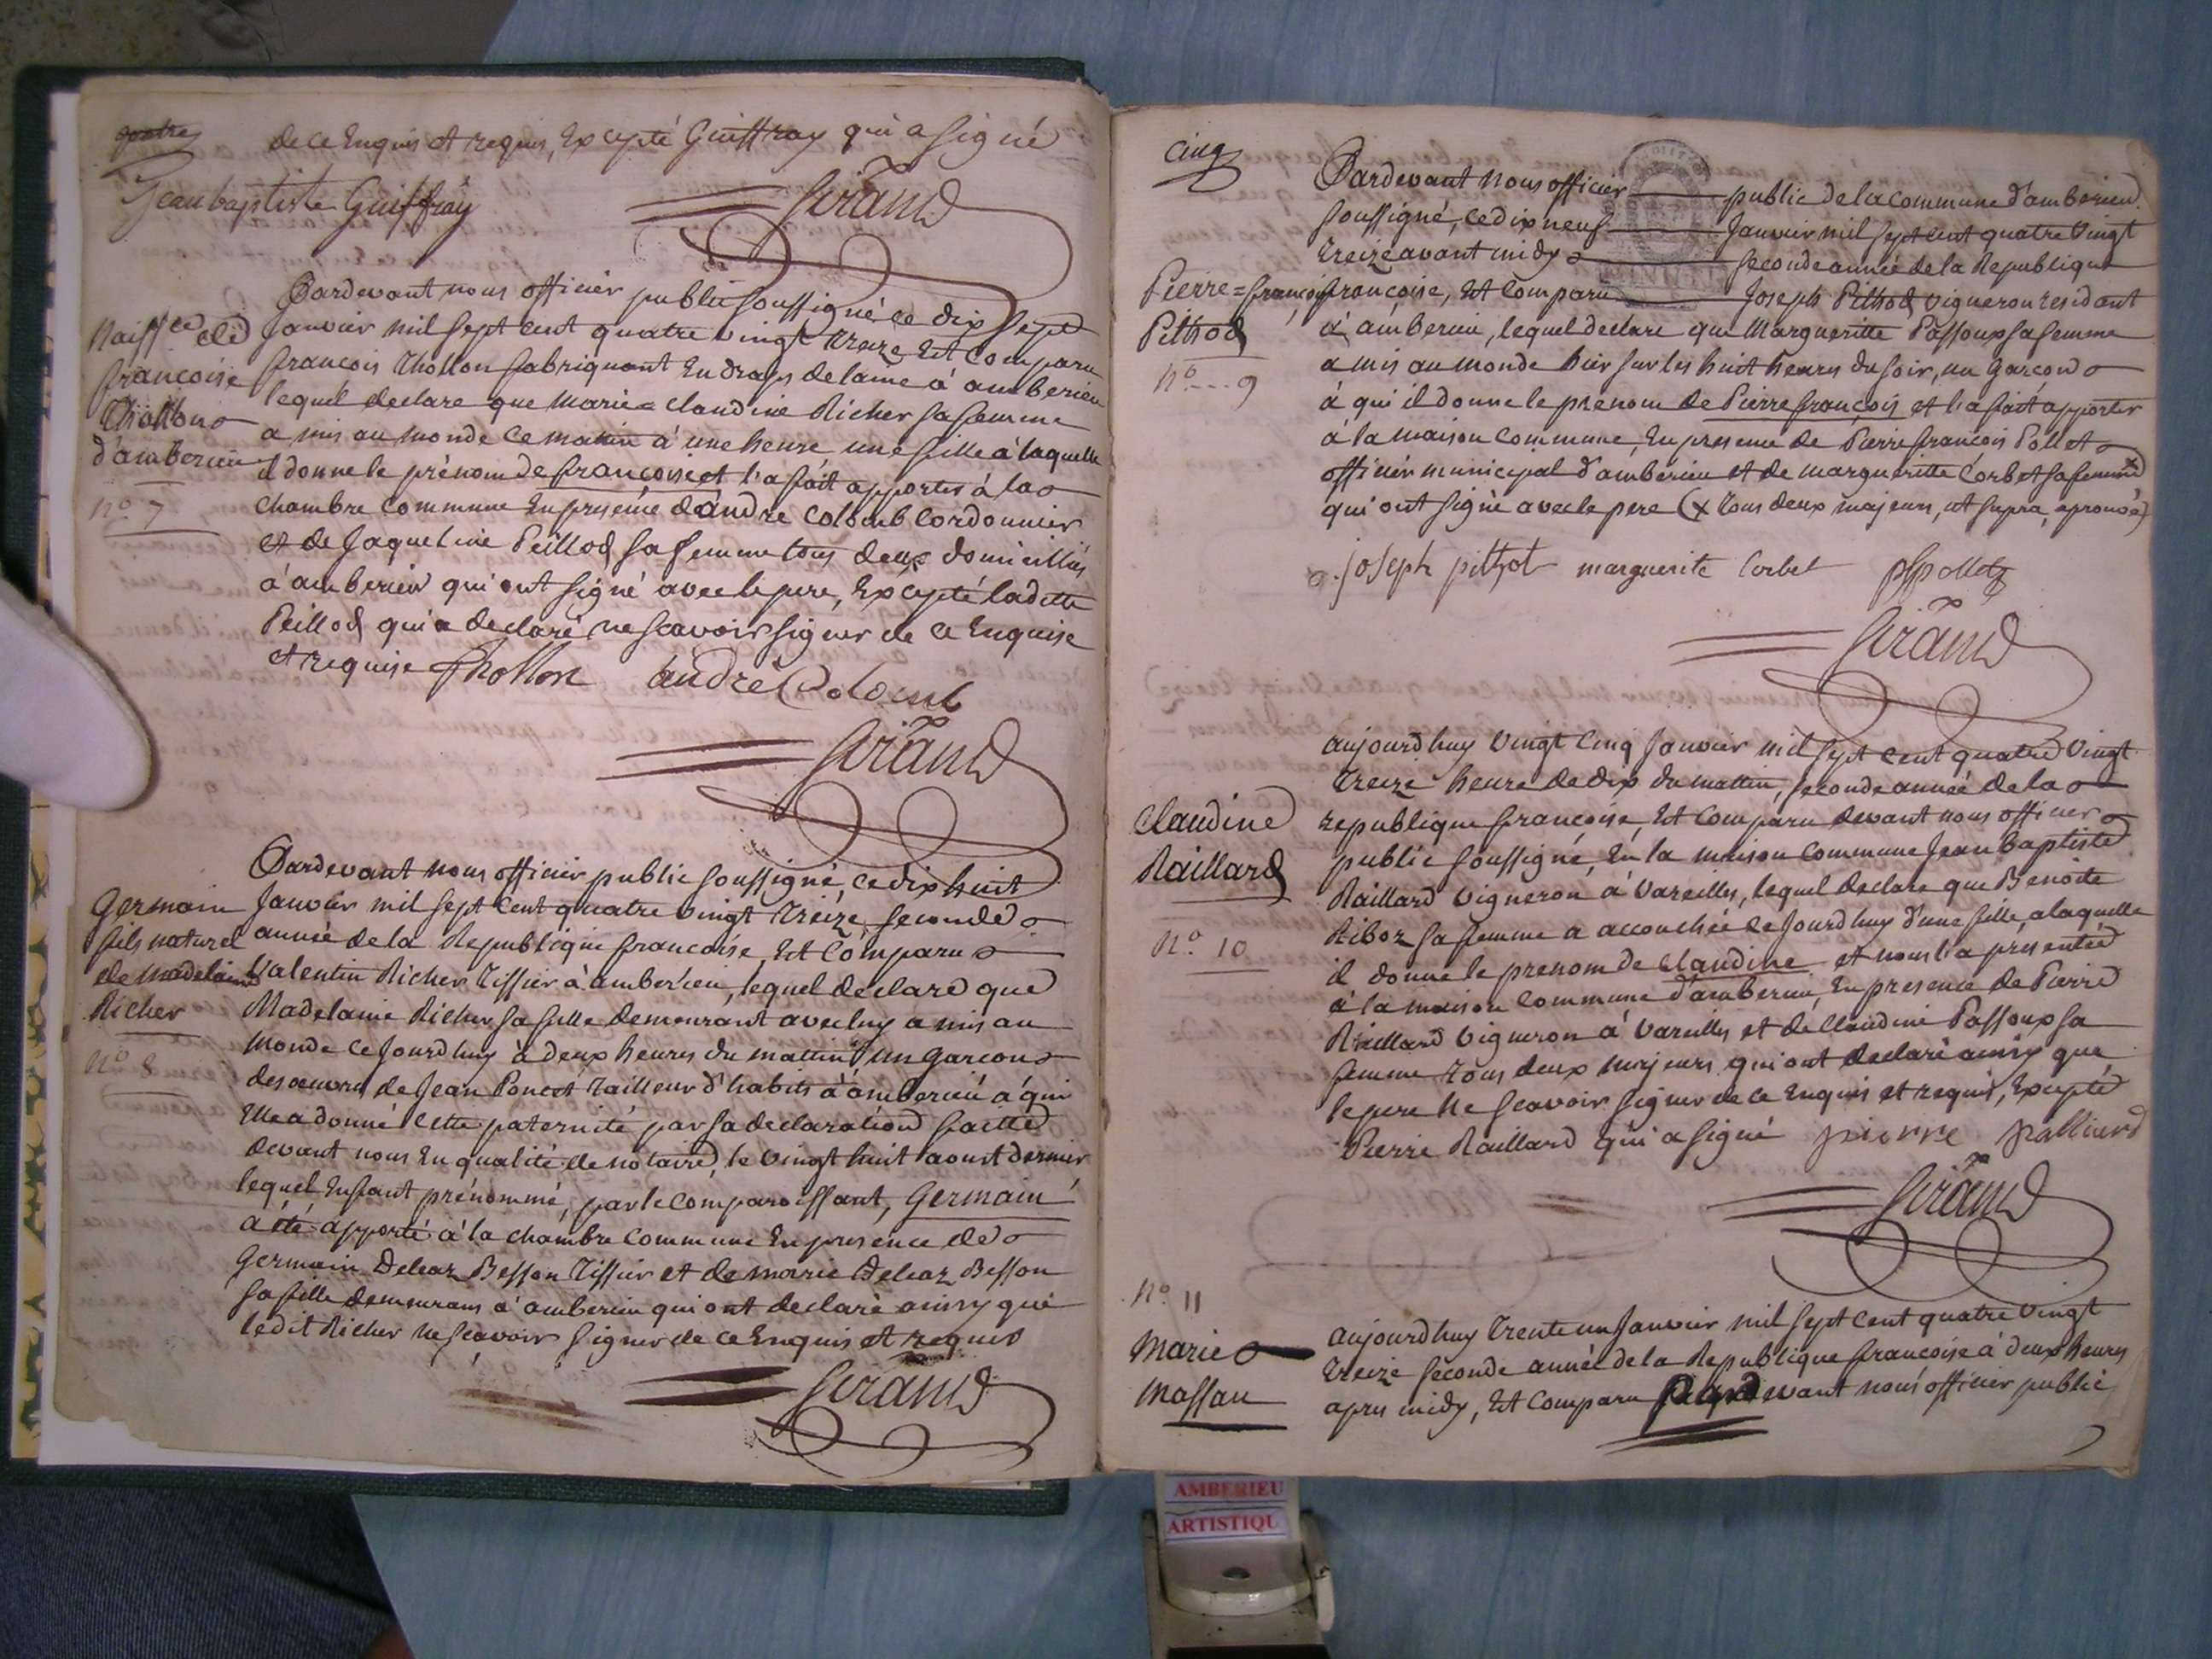 quatre
de ce Enquis et requis, Excepté Guiffray qui a signé
Jean baptiste Guiffray
Girand
Pardevant nous officier public soussigné ce dix sept
Naissce de
francoise
Thollon
d'amberieu
no 7
Janvier mil sept cent quatre vingt treize Est Comparu
francois Thollon fabriquant En draps de laine à amberieu
lequel declare que Marie=Claudine Richer sa femme
a mis au monde ce matin à une heure une fille à laquelle
il donne le prénom de francoise et l'a fait apporter à la
chambre Commune En presence d'andré Colomb Cordonnier
et de Jaqueline Peillod sa femme tous deux domiciliés
à amberieu qui ont signé avec le pere, Excepté ladette
Peillod qui a declaré ne scavoir signer de ce Enquise
et requise Thollon andré Colomb
Girand
Pardevant nous officier public soussigné, ce dix huit
Germain
fils naturel
de Madelaine
Richer
no 8
Janvier mil sept Cent quatre vingt Treize, seconde
année de la Republique francoise, Est Comparu
Valentin Richer Tissier à amberieu, lequel declare que
Madelaine Richer sa fille demeurant avec luy a mis au
Monde ce jourd'huy à deux heures du mattin un garcon
des oeuvres de Jean Poncet Tailleur d'habits à amberieu à qui
Elle a donné Cette paternité par sa declaration faitte
devant nous En qualité de notaire, le vingt huit aoust dernier
lequel Enfant prénommé, par le Comparoissant, Germain
a été apporté à la chambre Commune En presence de
Germain Deleaz Besson Tissier et de marie Deleaz Besson
sa fille demeurans à amberieu qui ont declaré ainsy que
ledit Richer ne scavoir signer de ce Enquis et requis
Girand
cinq
Pardevant nous officier public de la commune d'amberieu
soussigné, ce dix neuf Janvier mil sept cent quatre vingt
treize avant midy seconde année de la Republique
Pierre=francois
Pithod
no 9
francoise, Est Comparu Joseph Pithod vigneron residant
à amberieu, lequel declare que Margueritte Passoux sa femme
a mis au monde hier sur les huit heures du soir, un garcon
à qui il donne le prenom de Pierre francois et l'a fait apporter
à la maison Commune, En presence de Pierre francois Pollet
officier municipal d'amberieu et de margueritte Corbet sa femme x
qui ont signé avec le pere (x tous deux majeurs, ut supra, aprouvé)
joseph pithot marguerite Corbet pfpollet
Girand
aujourd'huy vingt Cinq Janvier mil sept Cent quatre vingt
treize heure de dix du mattin, seconde année de la
Claudine
Raillard
No 10
republique francoise, Est Comparu devant nous officier
public soussigné, En la maison Commune Jean Baptiste
Raillard Vigneron à Vareilles, lequel declare que Benoite
Riboz sa femme a accouchée ce jourd'huy d'une fille, a laquelle
il donne le prenom de Claudine et nous l'a présentée
à la maison Commune d'amberieu, En presence de Pierre
Raillard vigneron à Vareilles et de Claudine Passoux sa
femme tous deux majeurs qui ont declaré ainsy que
le pere ne scavoir signer de ce Enquis et requis, Excepté
Pierre Raillard qui a signé pierre ralliard
Girand
No 11
Marie
Massau
aujourd'huy trente un Janvier mil sept cent quatre vingt
treize seconde année de la Republique francoise à deux heures
apres midy, Est Comparu Pardevant nous officier public
AMBERIEU
ARTISTIQU